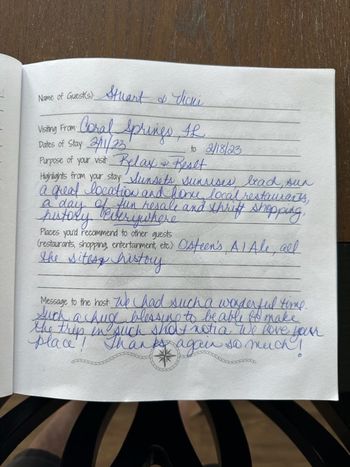 Name of Guest(s) Stuart & Vicki
Visiting From Coral Springs, FL
Dates of Stay 2/11/23 to 2/18/23
Purpose of your visit Relax & Reset
Highlights from your stay Sunsets, sunrises, sun
a great location and home, local restaurants,
a day of fun resale and thrift shopping,
history everywhere
Places you'd recommend to other guests
(restaurants, shopping, entertainment, etc.) Osteen's, A1A Ale, all
the sites, history
Message to the host We had such a wonderful time.
Such a huge blessing to be able to make
the trip in such short notice. We love your
place! Thanks again so much!